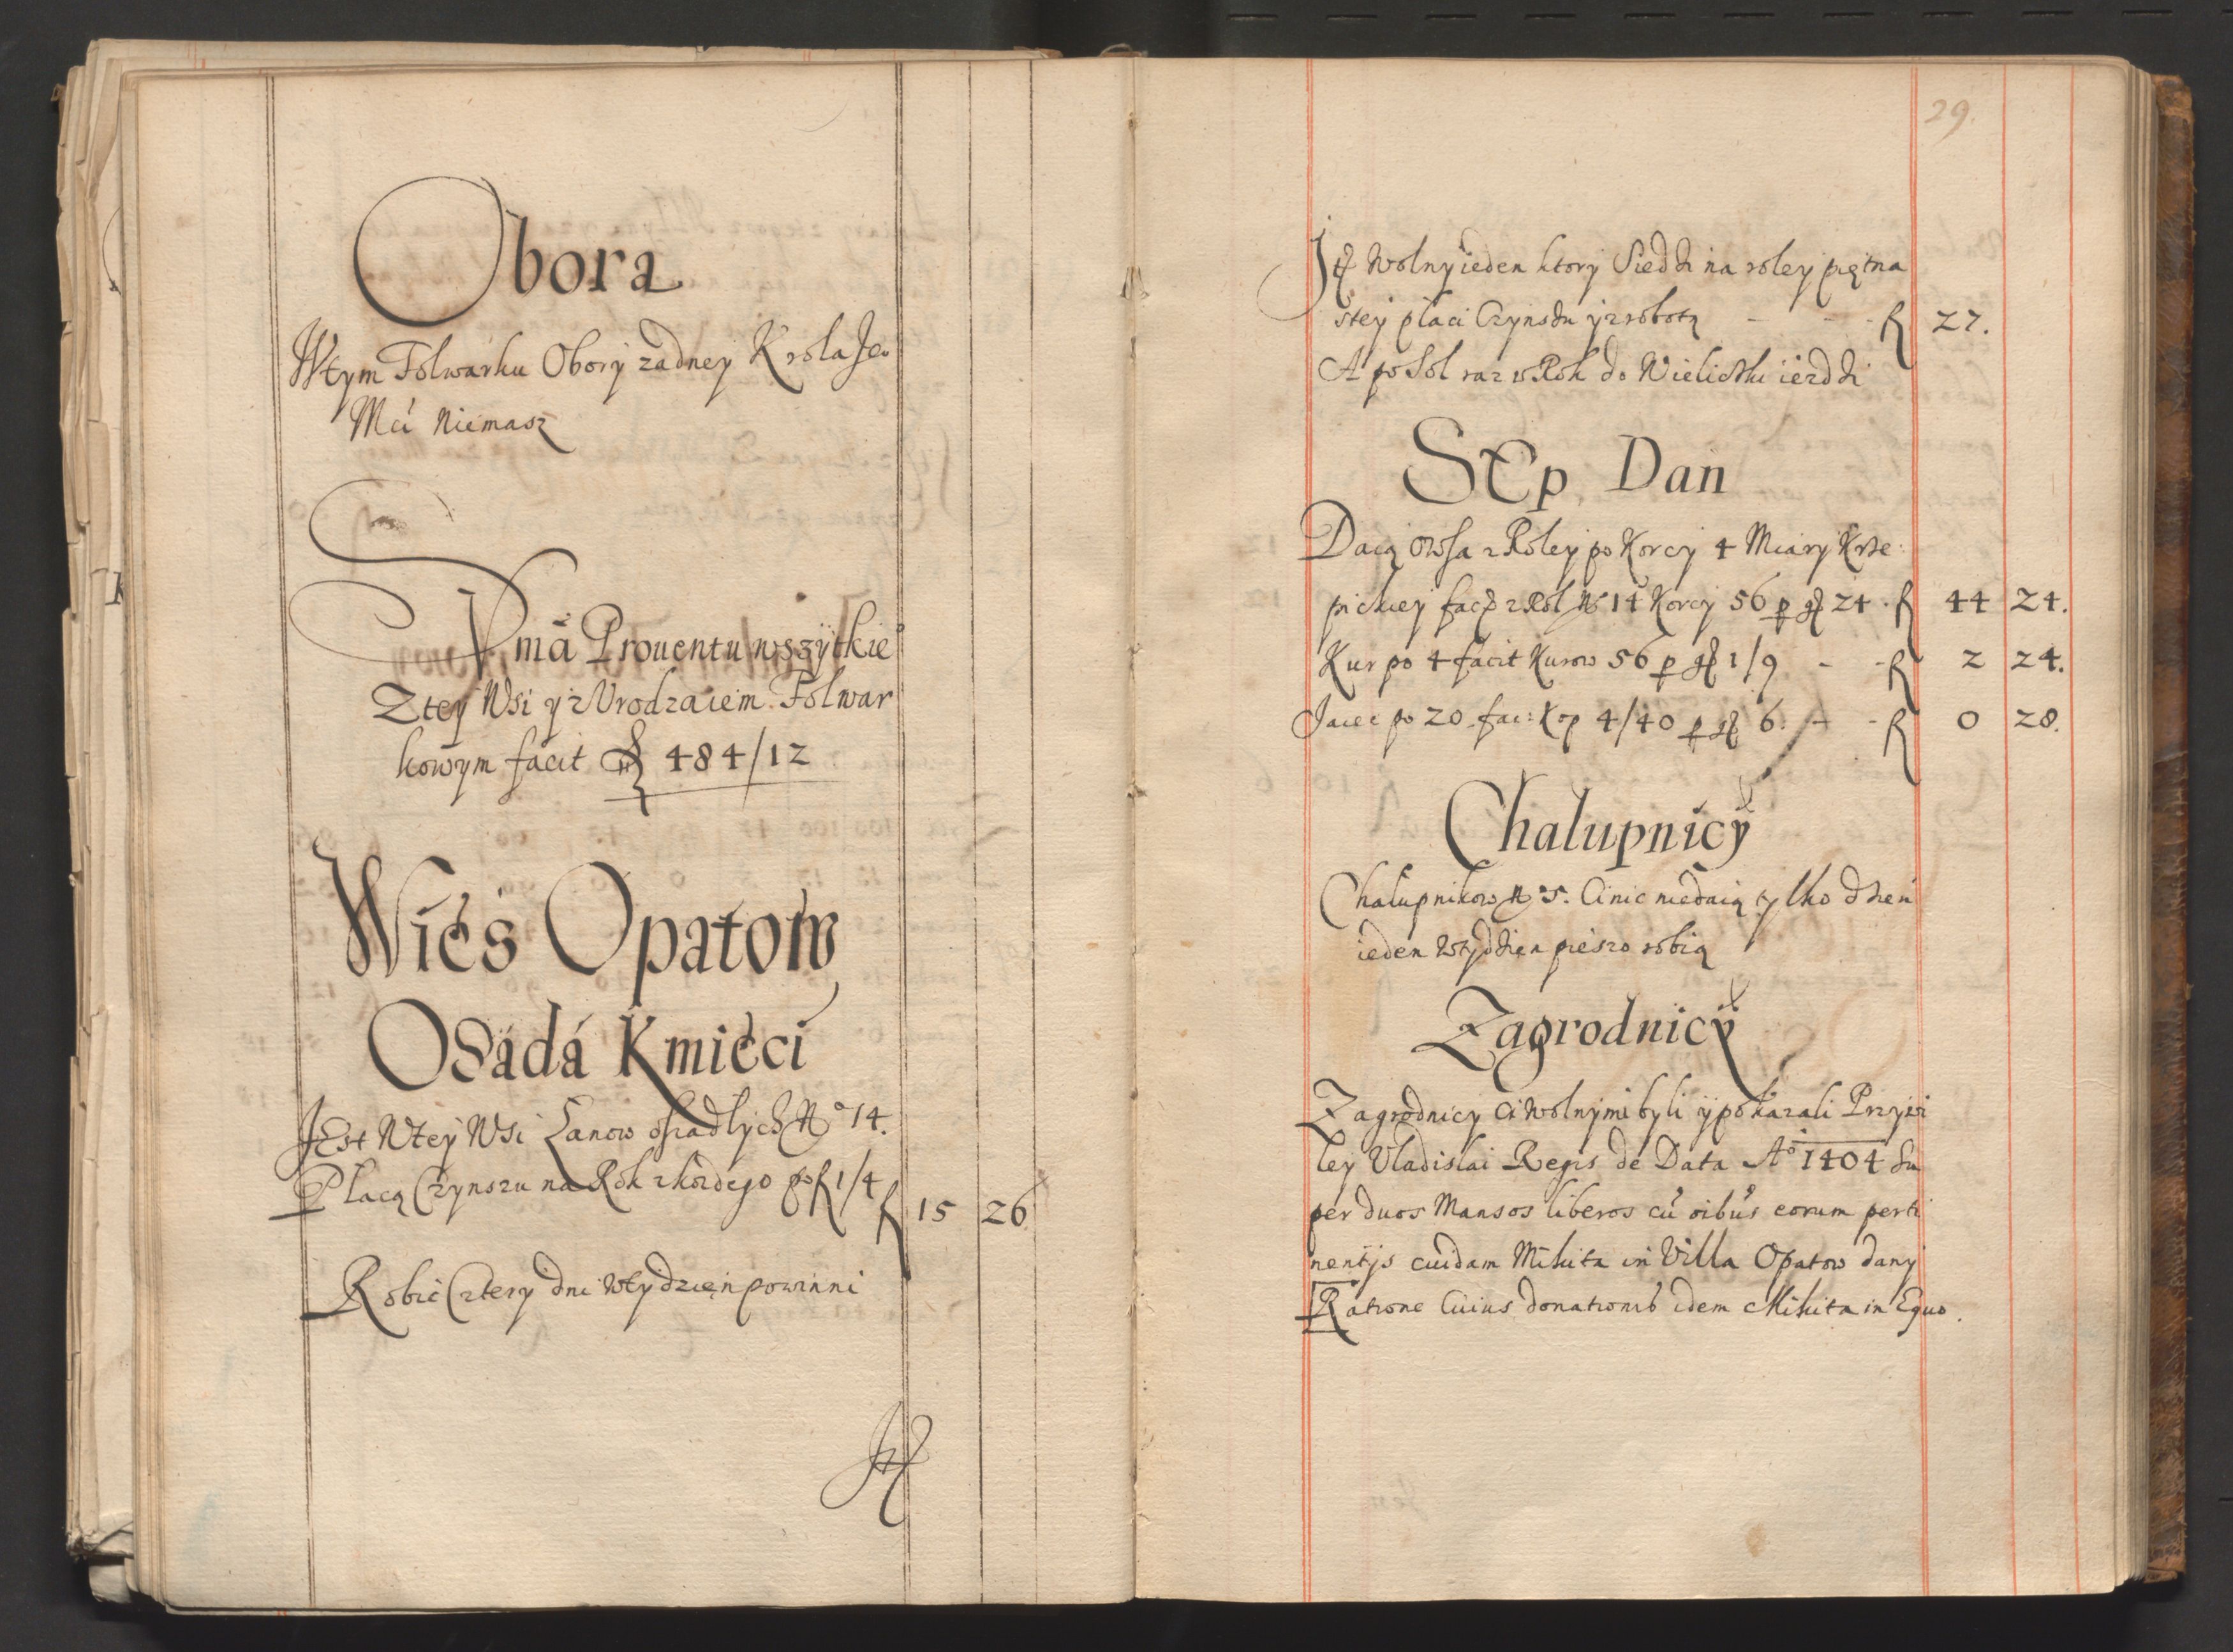 Obora
Wtym Folwarku Obory zadney Krola Je°
Mći Niemasz
Sūma Prouentu wszytkie°
Ztey Wsi y z Vrodzaiem Folwar
kowym facit fl 484/12
Wieś Opatow
Osada Kmieci
JEst Wtey Wsi Lanow osiadlych N° 14.
Placą Czynszu na Rok zkozdego po fl 1/4 fl 15 26
Robic Cztery dni wtydzień powinni
Jt
29.
Jt Wolny ieden ktory Siedzi na roley piętna
stey placi Czynszu y zrobotą - - - fl 27.
A po Sol raz w Rok do Wieliczki iezdzi
SEp Dan
Daią owsa z Roley po Korcy 4 Miary Krze:
pickiey facit z Rol N° 14 Korcy 56 p gr 24 . fl 44 24.
Kur po 4 facit Kurow 56 p gr 1/9 - - fl 2 24.
Jaiec po 20 fac: Kop 4/40 p gr 6. - - fl 0 28.
Chalupnicy
Chalupnikow N° 5. Ci nic niedaią tylko dzień
ieden wtydzien pieszo robią
Zagrodnicy
Zagrodnicy Ci wolnymi byli y pokazali Przywi
ley Vladislai Regis de Data A° 1404 Su
per duos Mansos liberos cū oibus eorum perti
nentijs cuidam Mikita in Villa Opatow dany
Ratione Cuius donationis idem Mikita in Equo.